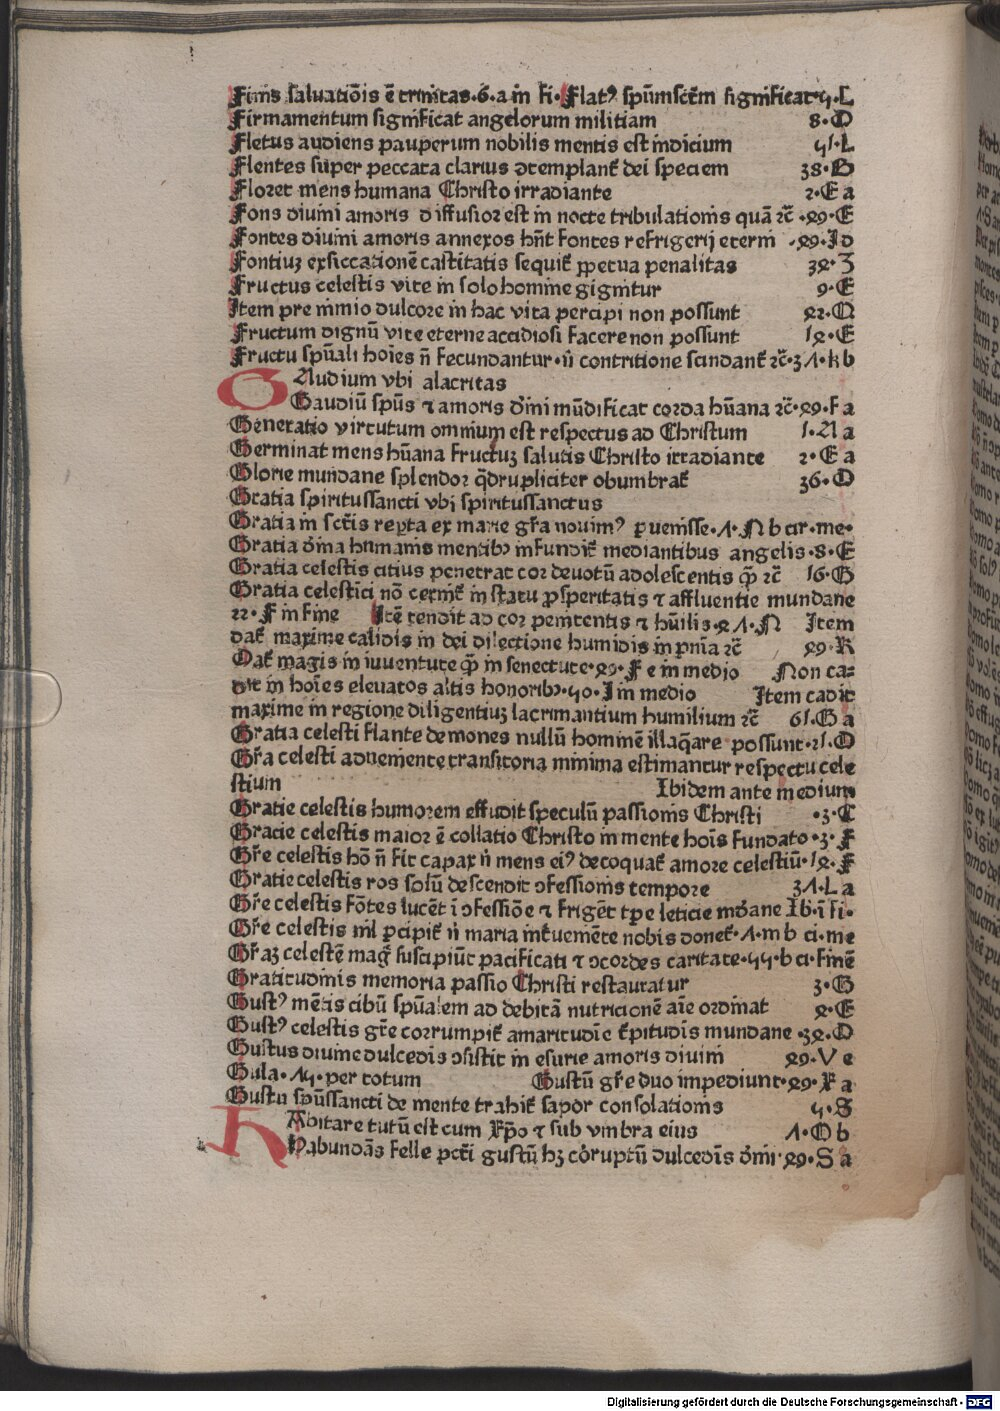 Finis saluatiōis ē trinitas·6·a in fi· Flatꝰ spūmsctm̄ significat·5·C
Firmamentum significat angelorum militiam 8·D
Fletus audiens pauperum nobilis mentis est indicium 51·L
Flentes super peccata clarius ↄtemplant̄ dei speciem 38·B
Floret mens humana Christo irradiante 2·E a
Fons diuini amoris diffusior est in nocte tribulationis quā ⁊c̄ ·29·E
Fontes diuini amoris annexos hn̄t fontes refrigerij eterni ·29·I d
Fontiuʒ exsiccationē castitatis sequit̄ ꝑpetua penalitas 32·Z
Fructus celestis vite in solo homine gignitur 9·E
Item pre nimio dulcore in hac vita percipi non possunt 22·N
Fructum dignū vite eterne accidiosi facere non possunt 12·E
Fructu spūali hoīes n̄ fecundantur·n̄ contritione scindant̄ ⁊c̄·31·k b
GAudium vbi alacritas
Gaudiū spūs ⁊ amoris dīni mūdificat corda hūana ⁊c̄·29·F a
Generatio virtutum omnium est respectus ad Christum 1·A a
Germinat mens hūana fructuʒ salutis Christo irradiante 2·E a
Glorie mundane splendor q̄drupliciter obumbrat̄ 36·D
Gratia spiritussancti vbi spiritussanctus
Gratia in sctīs reꝑta ex marie gr̄a nouimꝰ ꝑuenisse·1·N b cir·me·
Gratia dīna humanis mentibꝰ infundit̄ mediantibus angelis·8·E
Gratia celestis citius penetrat cor deuotū adolescentis q̄ꝫ ⁊c̄ 16·G
Gratia celestīci nō cernit̄ in statu ꝓsperitatis ⁊ affluentie mundane
22·F in fine Itē tendit ad cor penitentis ⁊ hūilis·21·N Item
dat̄ maxime calidis in dei dilectione humidis in pn̄ia ⁊c̄ 29·R
Dat̄ magis in iuuentute q̄ꝫ in senectute·29·F e in medio Non ca⸗
dit in hoīes eleuatos altis honoribꝰ·50·I in medio Item cadit
maxime in regione diligentiuʒ lacrimantium humilium ⁊c̄ 61·G a
Gratia celesti flante demones nullū hominē illaq̄are possunt·21·D
Gr̄a celesti adueniente transitoria minima estimantur respectu cele
stium Ibidem ante medium
Gratie celestis humorem effudit speculū passionis Christi ·3·C
Gracie celestis maior ē collatio Christo in mente hoīs fundato·3·F
Gr̄e celestis hō n̄ fit capax n̄ mens eiꝰ decoquat̄ amore celestiū·12·F
Gratie celestis ros solū descendit ↄfessionis tempore 31·L a
Gr̄e celestis fōtes lucēt ī ↄfessiōe ⁊ frigēt tꝑe leticie mūdane Ib·ī fi·
Gr̄e celestis nīl ꝑcipit̄ n̄ maria int̄ueniēte nobis donet̄·1·m b ci·me
Gr̄aʒ celestē maḡ suscipiūt pacificati ⁊ ↄcordes caritate·55·b ci·finē
Gratitudinis memoria passio Christi restauratur 3·G
Gustꝰ mētis cibū spūalem ad debitā nutricionē aīe ordinat 2·E
Gustꝰ celestis gr̄e corrumpit̄ amaritudīe t̄pitudīs mundane ·32·D
Gustus diuine dulcedīs ↄsistit in esurie amoris diuini 29·V e
Gula·15·per totum Gustū gr̄e duo impediunt·29·X a
Gustu spūssancti de mente trahit̄ sapor consolationis 5·S
HAbitare tutū est cum xp̄o ⁊ sub vmbra eius 1·O b
Habundās felle pctī gustū hʒ cōruptū dulcedīs dīni·29·S a
Digitalisierung gefördert durch die Deutsche Forschungsgemeinschaft - DFG